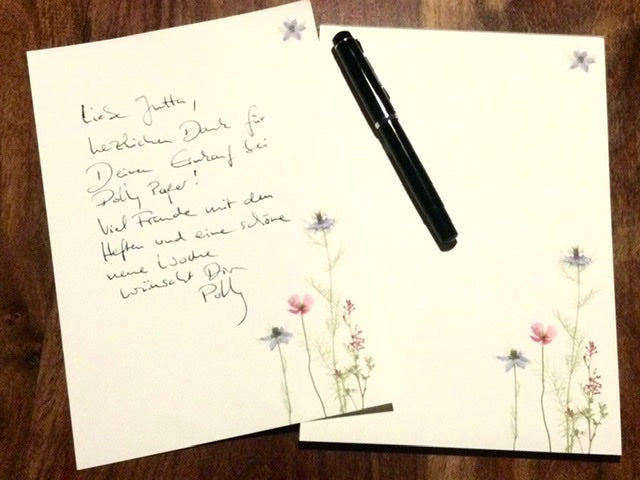 Liebe Jutta,
herzlichen Dank für
Deinen Einkauf bei
Polly Paper!
Viel Freude mit den
Heften und eine schöne
neue Woche
wünscht Dir
Polly